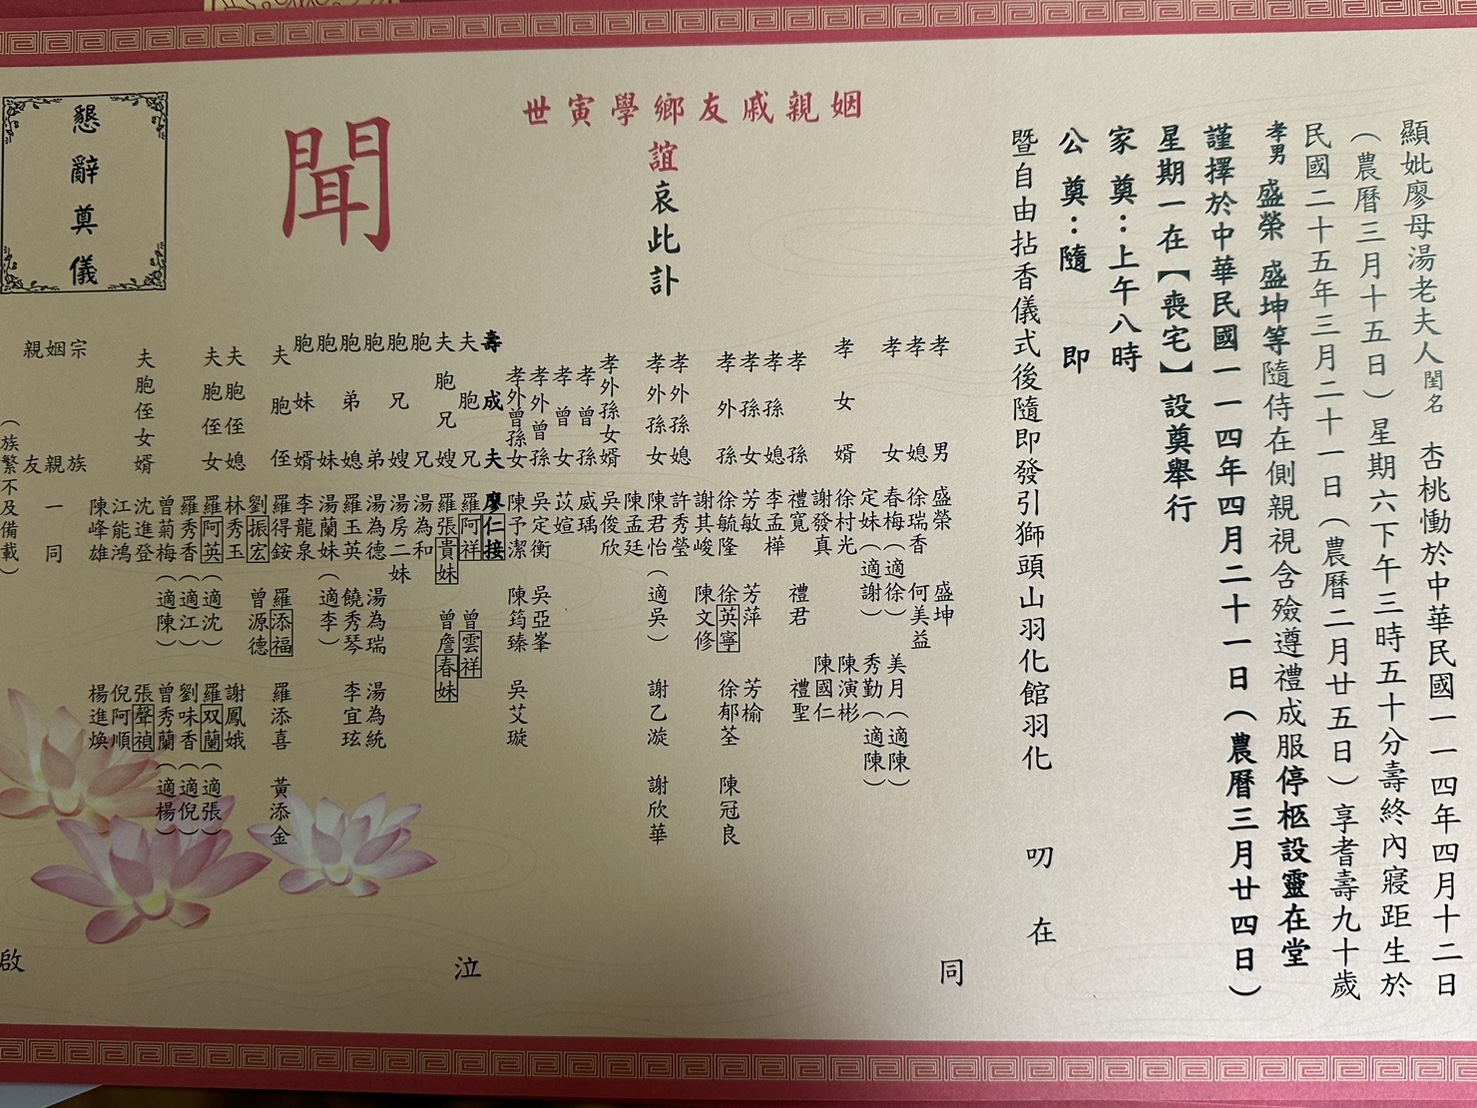 顯妣廖母湯老夫人閨名 杏桃慟於中華民國一一四年四月十二日
（農曆三月十五日）星期六下午三時五十分壽終內寢距生於
民國二十五年三月二十一日（農曆二月廿五日）享耆壽九十歲
孝男 盛榮 盛坤等隨侍在側親視含殮遵禮成服停柩設靈在堂
謹擇於中華民國一一四年四月二十一日（農曆三月廿四日）
星期一在【喪宅】設奠舉行
家奠：上午八時
公奠：隨 即
暨自由拈香儀式後隨即發引獅頭山羽化館羽化 叨在
姻親戚友鄉學寅世
誼哀此訃
聞
孝男 盛榮 盛坤 同
孝媳 徐瑞香 何美益
孝女 春梅（適徐） 美月（適陳）
定妹（適謝） 秀勤（適陳）
孝女婿 徐村光 陳演彬
謝發真 陳國仁
孝孫 禮寬 禮君 禮聖
孝孫媳 李孟樺
孝孫女 芳敏 芳萍 芳榆
孝外孫 徐毓隆 徐英寧 徐郁荃 陳冠良
謝其峻 陳文修
孝外孫媳 許秀瑩
孝外孫女 陳君怡（適吳） 謝乙漩 謝欣華
陳孟廷
孝外孫女婿 吳俊欣
孝曾孫 威瑀
孝曾孫女 苡媗
孝外曾孫 吳定衡 吳亞峯
孝外曾孫女 陳予潔 陳筠臻 吳艾璇
壽成夫 廖仁接
夫胞兄 羅阿祥 曾雲祥 泣
夫胞兄嫂 羅張貴妹 曾詹春妹
胞兄 湯為和
胞兄嫂 湯房二妹
胞弟 湯為德 湯為瑞 湯為統
胞弟媳 羅玉英 饒秀琴 李宜玹
胞妹 湯蘭妹（適李）
胞妹婿 李龍泉
夫胞侄 羅得銨 羅添福 羅添喜 黃添金
劉振宏 曾源德
夫胞侄媳 林秀玉 謝鳳娥
夫胞侄女 羅阿英（適沈） 羅双蘭（適張）
羅秀香（適江） 劉味香（適倪）
曾菊梅（適陳） 曾秀蘭（適楊）
夫胞侄女婿 沈進登 張聲禎
江能鴻 倪阿順
陳峰雄 楊進煥
宗族
姻親 一同
親友
（族繁不及備載） 啟
懇辭奠儀